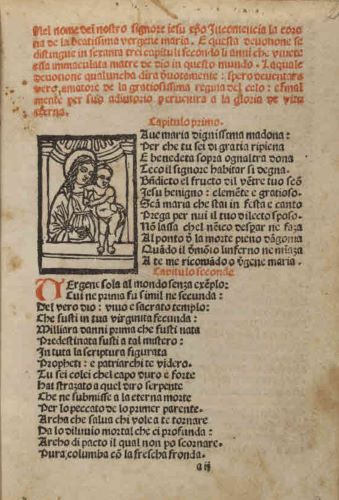 Nel nome del nostro signore iesu xp̄o Incomencia la coro
na de la beatissima vergene maria. E questa deuotione se
distingue in sexanta tre capituli secondo li anni che viuete
essa immaculata matre de dio in questo mondo. La quale
deuotione qualuncha dira diuotamente: spero deuentara
vero amatore de la gratiosissima regina del celo: e final
mente per suo adiutorio peruenira a la gloria de vita
eterna.
Capitulo primo.
Aue maria dignissima madona:
Per che tu sei di gratia ripiena
E benedeta sopra ognaltra dona
Teco il signore habitar si degna.
Bn̄dicto el fructo dil vētre tuo scō
Jesu benigno: clemēte e gratioso.
Scā maria che stai in festa e canto
Prega per nui il tuo dilecto sposo.
Nō lassa chel nēico despar ne faza
Al ponto d la morte pieno
Quādo il linferno ne
A te me ricomādo o v̄gene maria.
Capitulo secondo
VErgene sola al mondo senza exēplo:
Cui ne prima fu simil ne secunda:
Del vero dio: viuo e sacrato templo:
Che fusti in tua virginita fecunda:
Milliara danni prima che fusti nata
Predestinata fusti a tal mistero:
In tuta la scriptura figurata
Propheti: e patriarchi te videro.
Tu sei colei chel capo duro e forte
Hai strazato a quel diro serpente
Che ne submisse a la eterna morte
Per lo peccato de lo primer parente.
Archa che salua chi vole a te tornare
Da lo diluuio mortal che ci profunda:
Archo di pacto il qual non po scornare.
Pura columba cō la frescha fronda.
a ij